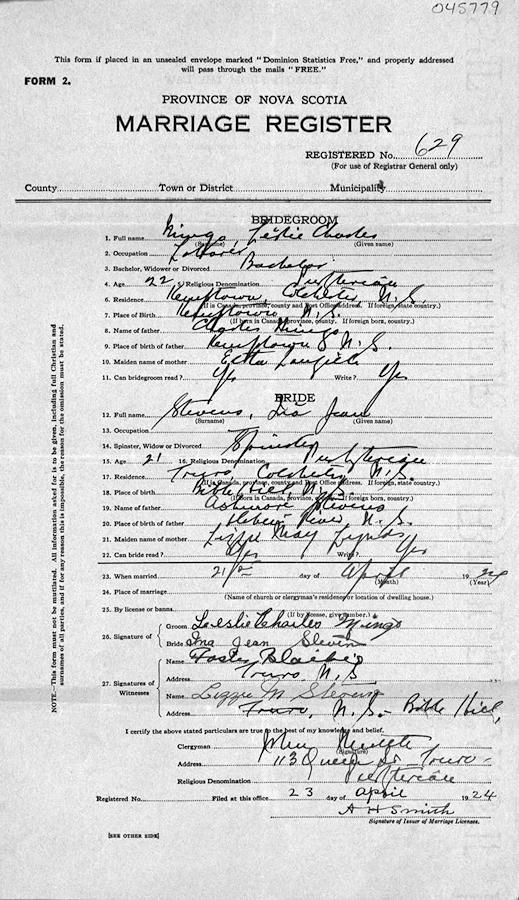 045779
This form if placed in an unsealed envelope marked "Dominion Statistics Free," and properly addressed
will pass through the mails "FREE."
FORM 2.
PROVINCE OF NOVA SCOTIA
MARRIAGE REGISTER
REGISTERED No. 629
(For use of Registrar General only)
County Town or District Municipality
BRIDEGROOM
1. Full name Mingo, Leslie Charles
(Surname) (Given name)
2. Occupation Laborer
3. Bachelor, Widower or Divorced Bachelor
4. Age 22 5. Religious Denomination Presbyterian
6. Residence Kemptown, Colchester, N.S.
(If in Canada, province, county and Post Office address. If foreign, state country.)
7. Place of Birth Kemptown N.S.
(If born in Canada, province, county. If foreign born, country.)
8. Name of father Charles Mingo
9. Place of birth of father Kemptown N.S.
10. Maiden name of mother Etta
11. Can bridegroom read? Yes Write? Yes
BRIDE
12. Full name Stevens, Ina Jean
(Surname) (Given name)
13. Occupation
14. Spinster, Widow or Divorced Spinster
15. Age 21 16. Religious Denomination Presbyterian
17. Residence Truro, Colchester, N.S.
(If in Canada, province, county and Post Office address. If foreign, state country.)
18. Place of birth Bible Hill, N.S.
(If born in Canada, province, county. If foreign born, country.)
19. Name of father Stevens
20. Place of birth of father River, N.S.
21. Maiden name of mother Lizzie May Lynds
22. Can bride read? Yes Write? Yes
23. When married 21st day of April 1924
(Month) (Year)
24. Place of marriage
(Name of church or clergyman's residence, or location of dwelling house.)
25. By license or banns
(If by license, give number.)
26. Signature of
Groom Leslie Charles Mingo
Bride Ina Jean Steven
27. Signatures of Witnesses
Name Foster Blaikie
Address Truro, N.S
Name Lizzie M Stevens
Address Truro, N.S. - Bible Hill,
I certify the above stated particulars are true to the best of my knowledge and belief.
Clergyman John
(Signature)
Address 113 Queen St Truro -
Religious Denomination Presbyterian
Registered No. Filed at this office 23 day of April 1924
A H Smith
Signature of Issuer of Marriage Licenses.
[SEE OTHER SIDE]
NOTE—This form must not be mutilated. All information asked for is to be given, including full Christian and
surnames of all parties, and if for any reason this is impossible, the reason for the omission must be stated.